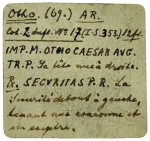 Otho. (69.) AR.
Col. 2 suff. Nº 17 (I-S.353) 12fs.
IMP. M. OTHO CAESAR AVG.
TR. P. Sa tête nue à droite.
R. SECVRITAS P. R. La
Sécurité debout à gauche,
tenant une couronne et
un sceptre.